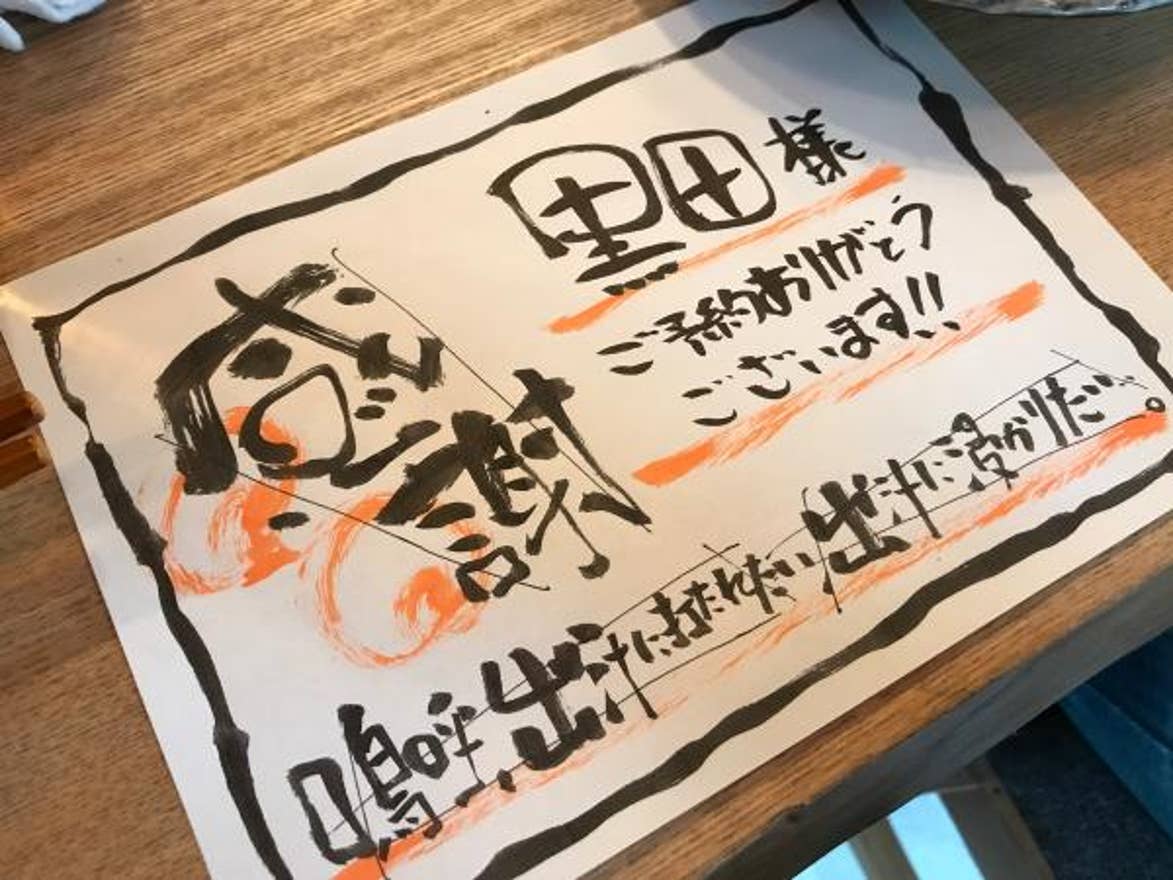 黒田様
ご予約ありがとう
ございます!!
感謝
嗚呼、出汁に打たれたい出汁に浸かりたい。